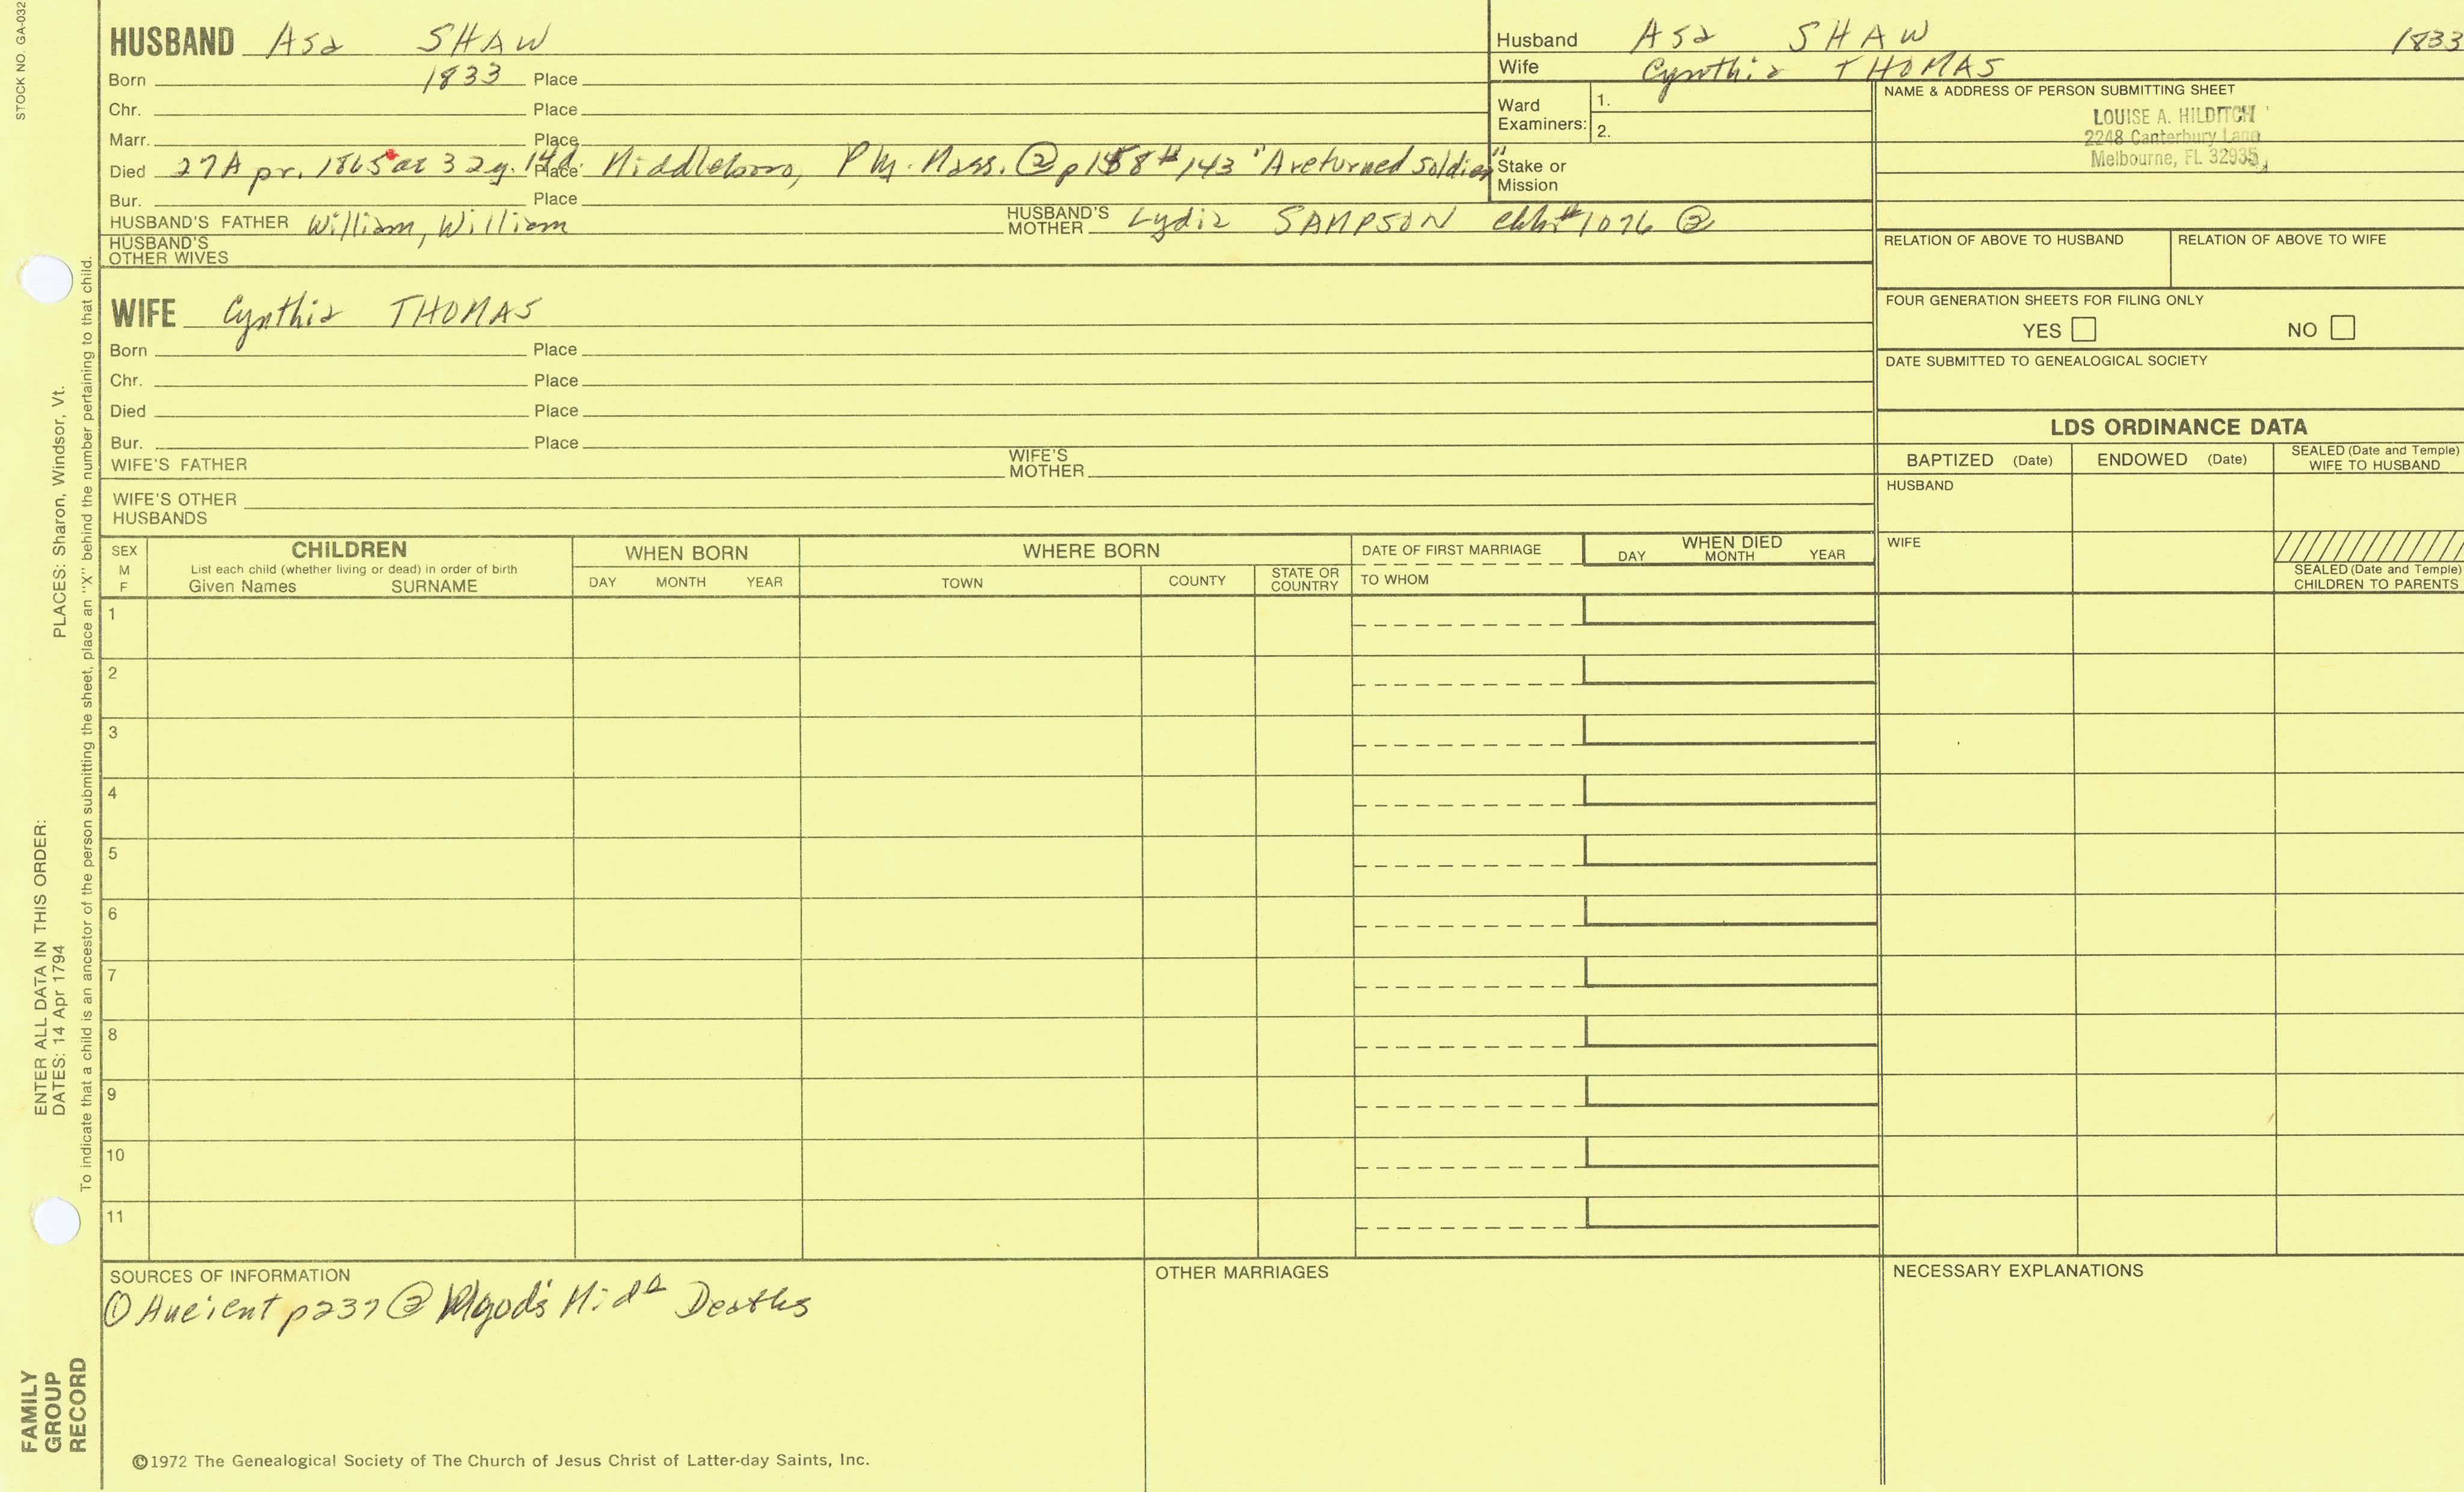 STOCK NO. GA-032
HUSBAND Asa SHAW
Born 1833 Place
Chr. Place
Marr. Place
Died 27 Apr. 1865 ae 32y. 14d. Place Middleboro, Ply. Mass. ② p158 #143 "A returned soldier"
Bur. Place
HUSBAND'S FATHER William, William HUSBAND'S MOTHER Lydia SAMPSON #1076 ②
HUSBAND'S OTHER WIVES
Husband Asa SHAW 1833
Wife Cynthia THOMAS
Ward Examiners: 1.
2.
Stake or Mission
NAME & ADDRESS OF PERSON SUBMITTING SHEET
LOUISE A. HILDITCH
2248 Canterbury Lane
Melbourne, FL 32935
RELATION OF ABOVE TO HUSBAND RELATION OF ABOVE TO WIFE
FOUR GENERATION SHEETS FOR FILING ONLY
YES NO
DATE SUBMITTED TO GENEALOGICAL SOCIETY
WIFE Cynthia THOMAS
Born Place
Chr. Place
Died Place
Bur. Place
WIFE'S FATHER WIFE'S MOTHER
WIFE'S OTHER HUSBANDS
LDS ORDINANCE DATA
BAPTIZED (Date) ENDOWED (Date) SEALED (Date and Temple) WIFE TO HUSBAND
HUSBAND
WIFE
SEALED (Date and Temple) CHILDREN TO PARENTS
SEX M F
CHILDREN
List each child (whether living or dead) in order of birth
Given Names SURNAME
WHEN BORN
DAY MONTH YEAR
WHERE BORN
TOWN COUNTY STATE OR COUNTRY
DATE OF FIRST MARRIAGE
TO WHOM
WHEN DIED
DAY MONTH YEAR
1
2
3
4
5
6
7
8
9
10
11
SOURCES OF INFORMATION
① Ancient p237 ② Deaths
OTHER MARRIAGES
NECESSARY EXPLANATIONS
©1972 The Genealogical Society of The Church of Jesus Christ of Latter-day Saints, Inc.
PLACES: Sharon, Windsor, Vt.
To indicate that a child is an ancestor of the person submitting the sheet, place an "X" behind the number pertaining to that child.
ENTER ALL DATA IN THIS ORDER:
DATES: 14 Apr 1794
FAMILY
GROUP
RECORD